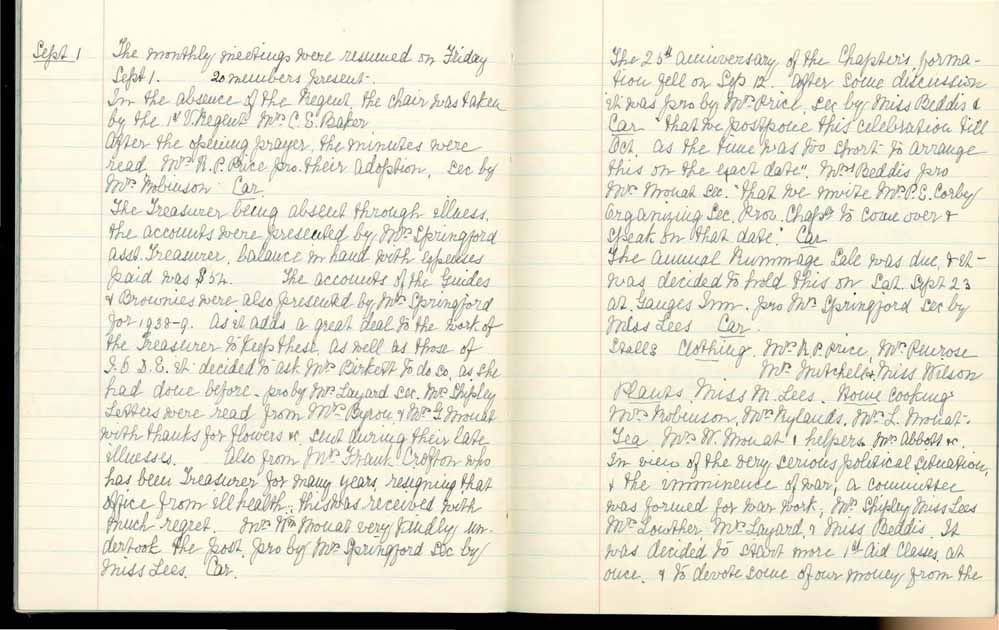 Sept 1 The monthly meetings were resumed on Friday
Sept 1. 20 members present.
In the absence of the Regent the chair was taken
by the 1st V. Regent Mrs C. E. Baker
After the opening prayer, the minutes were
read Mrs R. P. Price pro. their adoption, sec by
Mrs Robinson Car
The Treasurer being absent through illness,
the accounts were presented by Mrs Springford
asst. Treasurer, balance in hand with expenses
paid was $54. The accounts of the Guides
& Brownies were also presented by Mrs Springford
for 1938-9. As it adds a great deal to the work of
the Treasurer to keep these, as well as those of
I. O. D. E. it decided to ask Mrs Birkett to do so, as she
had done before. pro by Mrs Layard sec. Mrs Shipley
Letters were read from Mrs Byron, & Mrs G. Mouat
with thanks for flowers &c, sent during their late
illnesses. Also from Mrs Frank Crofton who
has been Treasurer for many years, resigning that
office from ill health, this was received with
much regret. Mrs Wm Mouat very kindly un-
dertook the post, pro by Mrs Springford sec by
Miss Lees. Car.
The 25th anniversary of the Chapter's forma-
tion fell on Sep 12. After some discussion
it was pro by Mrs Price, sec by Miss Beddis &
Car "that we postpone this celebration till
Oct. as the time was too short to arrange
this on the exact date". Mrs Beddis pro
Mrs Mouat sec. "that we invite Mrs P. E. Corby
Organizing Sec. Prov. Chapt to come over &
speak on that date." Car
The annual Rummage Sale was due, & it
was decided to hold this on Sat. Sept 23
at Ganges Inn. pro Mrs Springford sec by
Miss Lees Car.
Stalls Clothing. Mrs R. P. Price, Mrs Penrose
Mrs Mitchell & Miss Wilson
Plants Miss M. Lees. Home Cooking
Mrs Robinson, Mrs Rylands, Mrs L. Mouat
Tea Mrs W. Mouat & helpers Mrs Abbott &c.
In view of the very serious political situation,
& the imminence of war, a committee
was formed for war work, Mrs Shipley Miss Lees
Mrs Lowther, Mrs Layard, & Miss Beddis. It
was decided to start more 1st Aid Classes at
once. & to devote some of our money from the